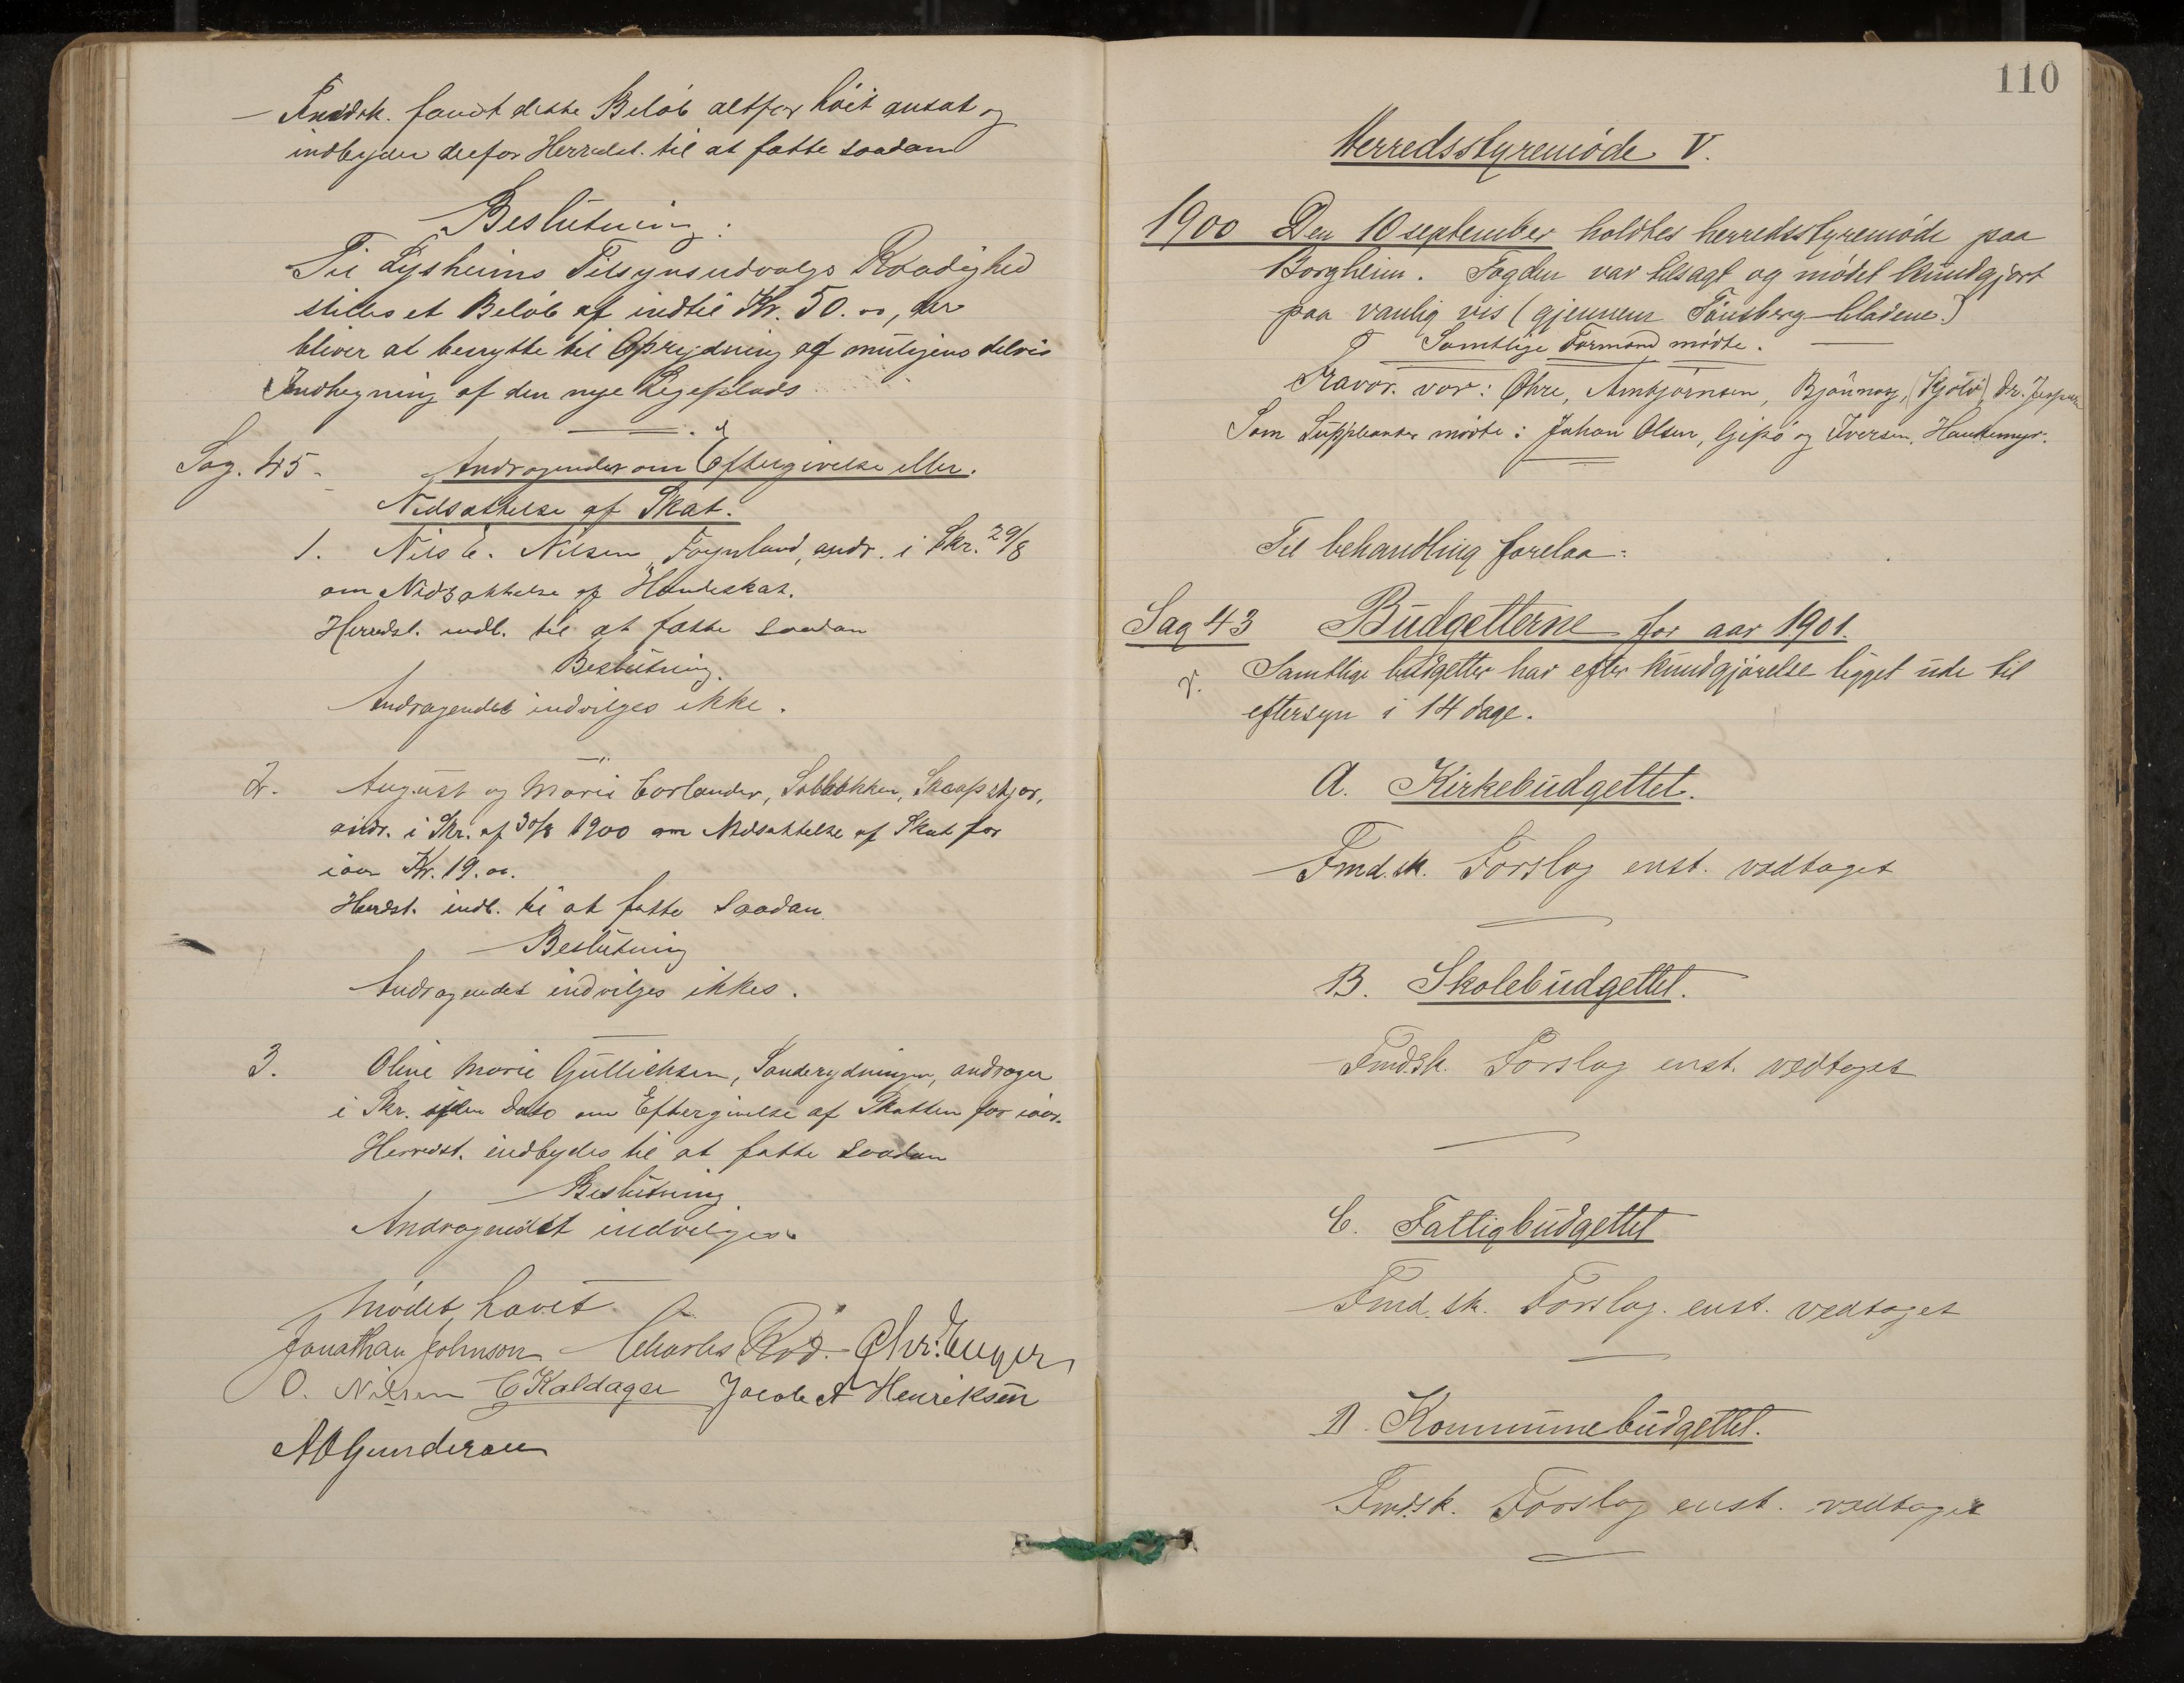 Fmdsk. fandt dette Beløb altfor høit ansat og
indbyder derfor Herredst. til at fatte saadan
Beslutning:
Til Lysheims Tilsynsudvalgs Raadighed
stilles et Beløb af indtil Kr. 50.00, der
bliver at benytte til Oprydning og muligens delvis
Indhegning af den nye Legeplads
Sag. 45. Andragender om Eftergivelse eller
Nedsættelse af Skat.
1. Nils E. Nilsen, Føynland, andr. i Skr. 29/8
om Nedsættelse af Hundeskat.
Herredst. indb. til at fatte saadan
Beslutning.
Andragendet indvilges ikke.
2. August og Marie Corlander, Solbakken, Skaapskjær,
andr. i Skr. af 30/8 1900 om Nedsættelse af Skat for
iaar Kr. 19.00.
Herdst. indb. til at fatte saadan
Beslutning
Andragendet indvilges ikkes.
3. Oline Marie Gulliksen, Sanderydningen, andrager
i Skr. af den dato om Eftergivelse af Skatten for iaar.
Herredst. indbydes til at fatte saadan
Beslutning
Andragendet indvilges.
Mødet hævet
Jonathan Johnson Charles Rød. Chr: Unger
O. Nilsen C Kaldager Jacob A Henriksen
A O Gundersen
110
Herredsstyremøde V.
1900 Den 10 september holdtes herredsstyremøde paa
Borgheim. Fogden var tilsagt og mødet kundgjort
paa vanlig vis (gjennem Tønsberg-bladene.)
Samtlige Formænd mødte.
Fravær. var: Øhre, Arnbjørnsen, Bjønnæs, (Kjølø), Dr. Jespersen
Som Suppleanter mødte: Johan Olsen, Gipø og Iversen, Haukemyr.
Til behandling forelaa:
Sag 43 Budgetterne for aar 1901.
V. Samtlige budgetter har efter kundgjørelse ligget ude til
eftersyn i 14 dage.
A. Kirkebudgettet.
Fmd.sk. Forslag enst. vedtaget
B. Skolebudgettet.
Fmdsk. Forslag enst. vedtaget
C. Fattigbudgettet
Fmd.sk. Forslag. enst. vedtaget
D. Kommunebudgettet.
Fmdsk. Forslag enst. vedtaget